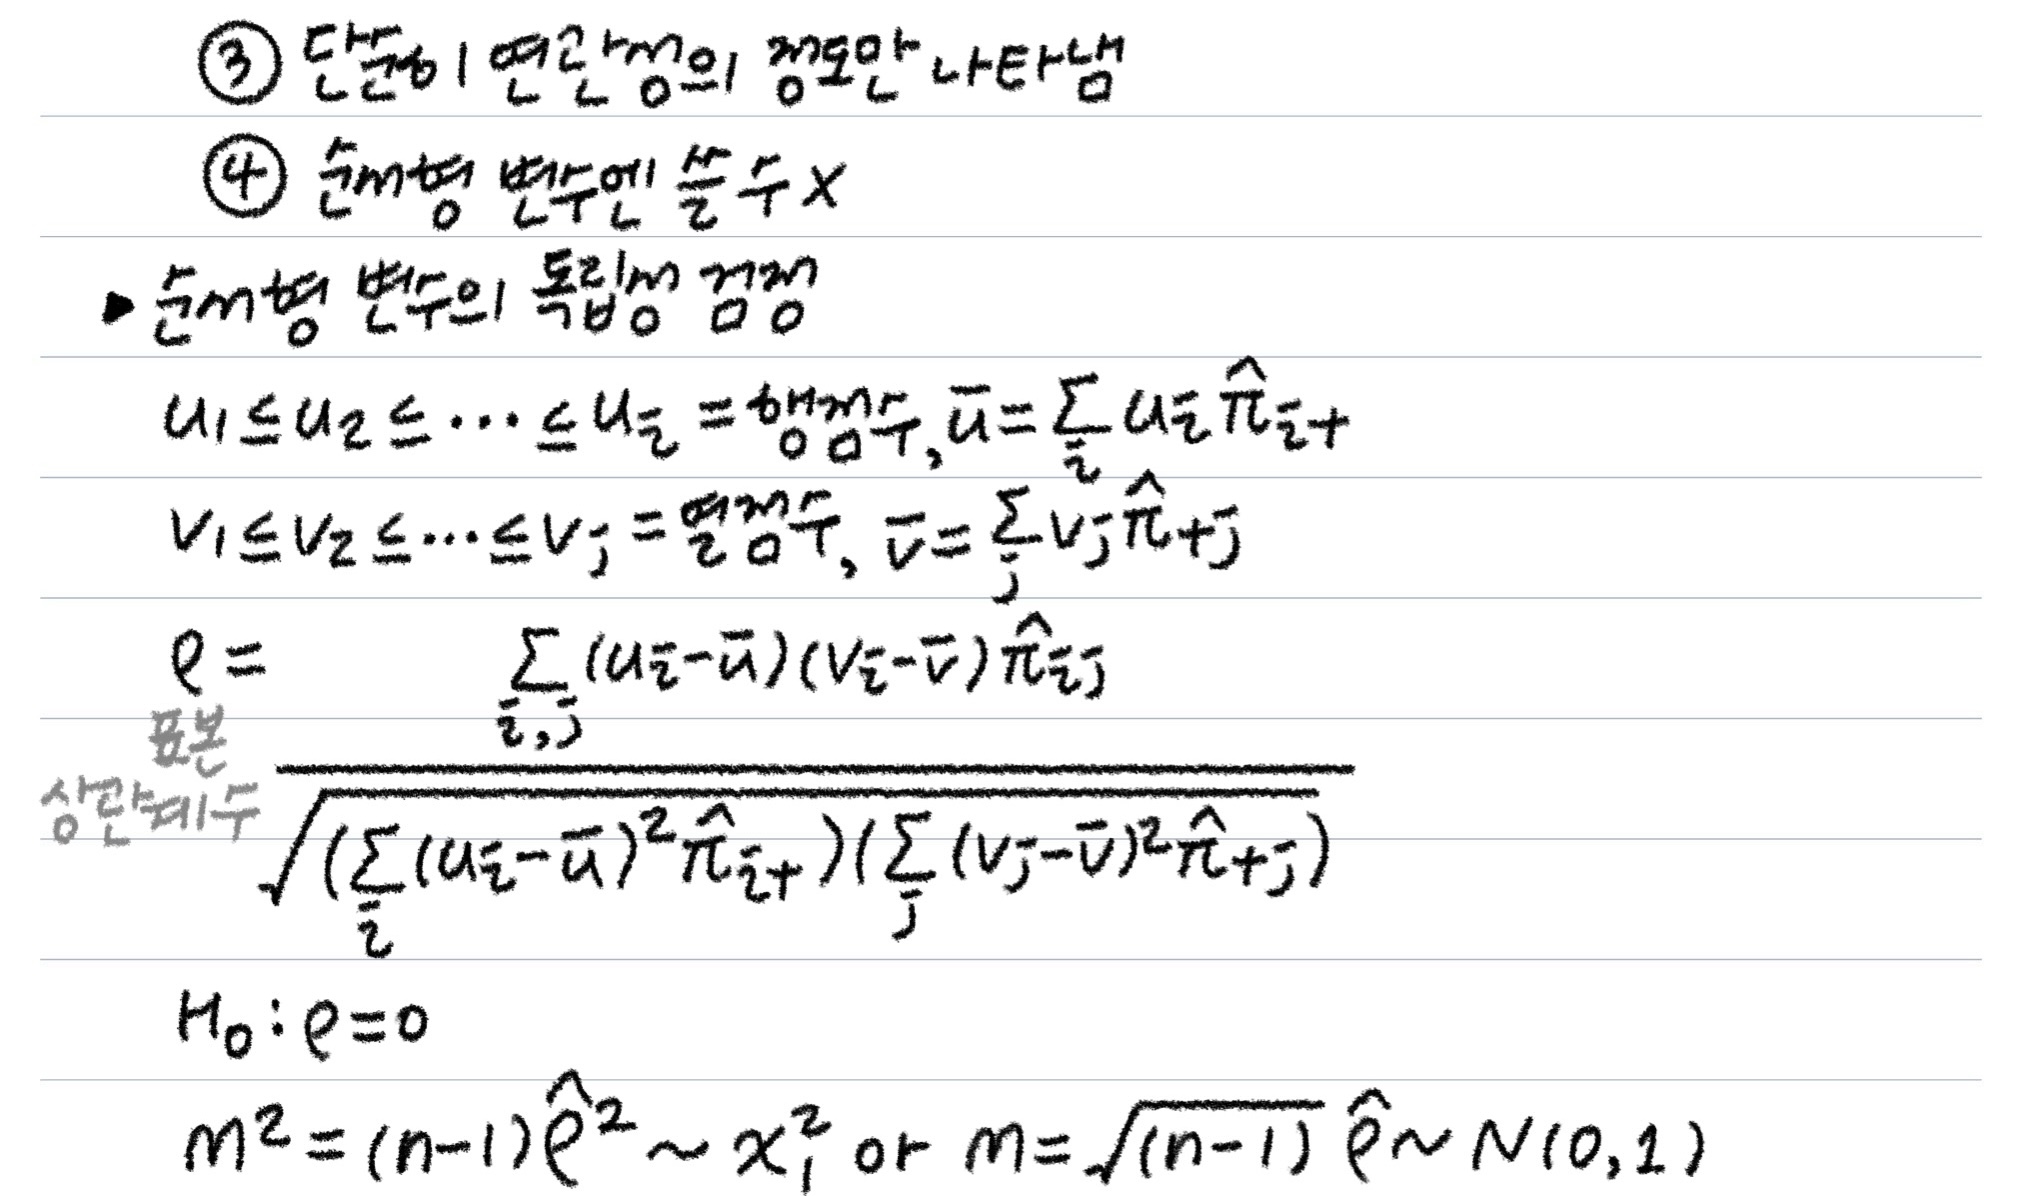 ③ 단순히 연관성의 정도만 나타냄
④ 순서형 변수엔 쓸 수 X
▶ 순서형 변수의 독립성 검정
u₁ ≤ u₂ ≤ ··· ≤ uᵢ = 행점수, ū = Σᵢ uᵢ π̂ᵢ₊
v₁ ≤ v₂ ≤ ··· ≤ vⱼ = 열점수, v̄ = Σⱼ vⱼ π̂₊ⱼ
ρ = Σᵢ,ⱼ (uᵢ - ū)(vᵢ - v̄) π̂ᵢⱼ
표본
상관계수
√(Σᵢ (uᵢ - ū)² π̂ᵢ₊)(Σⱼ (vⱼ - v̄)² π̂₊ⱼ)
H₀ : ρ = 0
m² = (n-1) ρ̂² ~ χ₁² or m = √(n-1) ρ̂ ~ N(0,1)